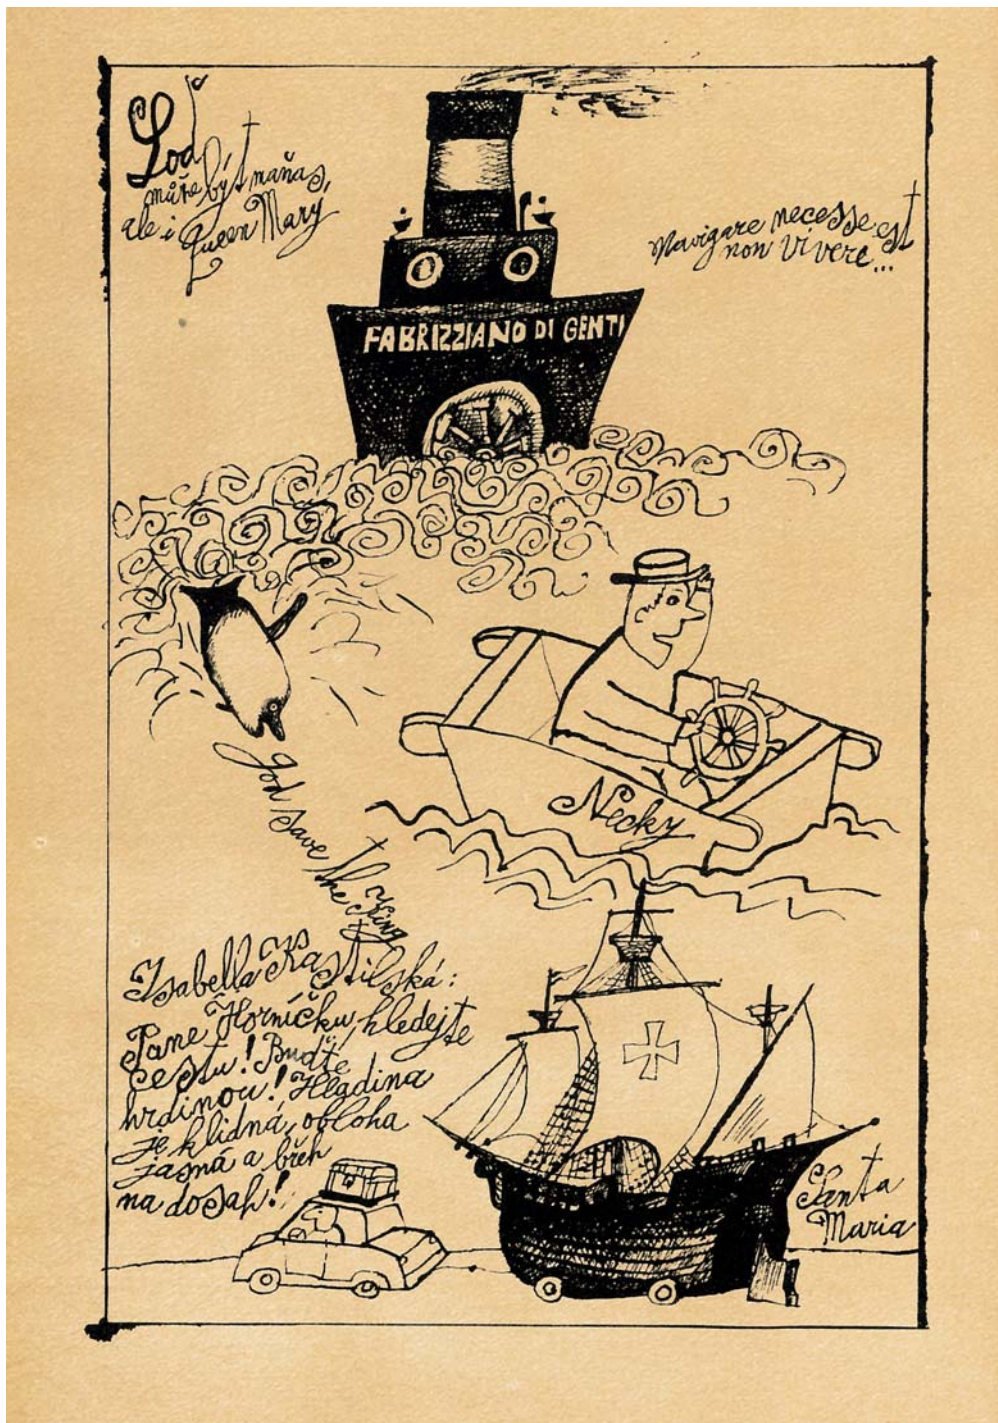 Loď
může být maňas,
ale i Queen Mary
Navigare necesse est
non vivere...
FABRIZZIANO DI GENTI
Necky
god save the King
Isabella Kastilská:
Pane Horníčku, hledejte
cestu! Buďte
hrdinou! Hladina
je klidná, obloha
jasná a břeh
na dosah!
Santa
Maria